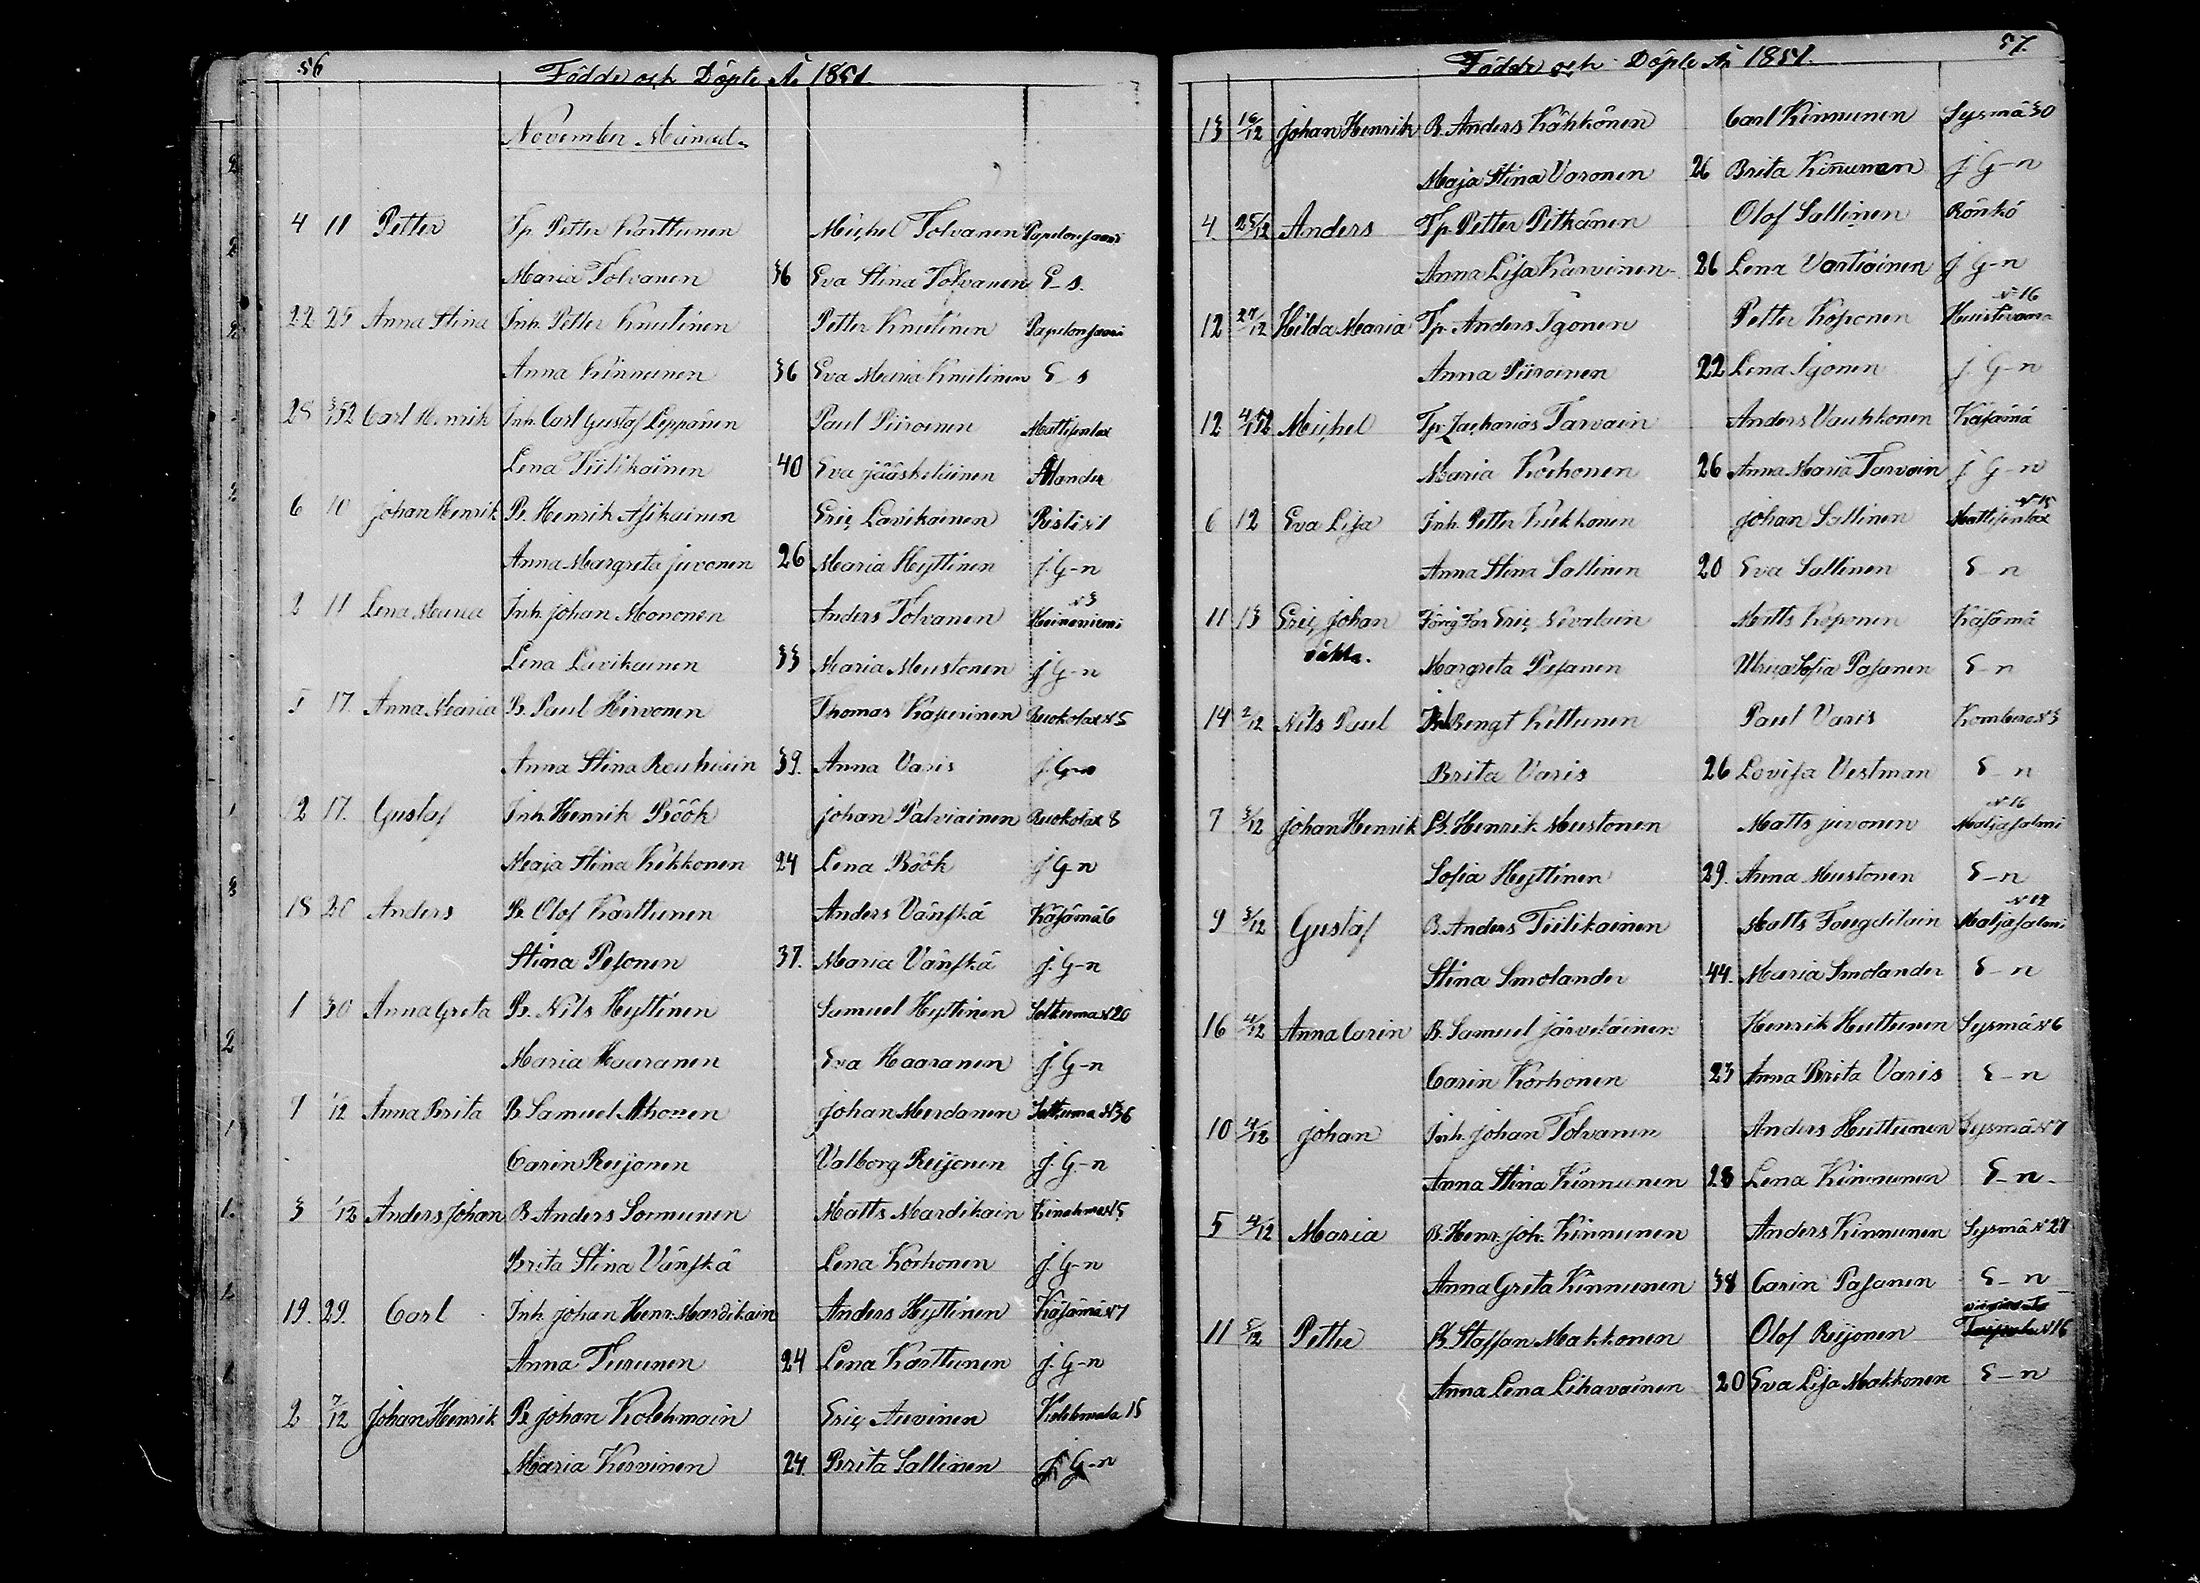 56
Födde och Döpte År 1851.
November Månad.
4 11 Petter Tp. Petter Karttunen Michel Tolvanen Papelonsaari
Maria Tolvanen 36 Eva Stina Tolvanen E-s.
22 25 Anna Stina Inh. Petter Knutinen Petter Knutinen Papelonsaari
Anna Kinnunen 36 Eva Maria Knutinen E-s
28 Carl Henrik Inh. Carl Gustaf Leppänen Paul Piiroinen Mattisenlax
Lena Tiilikainen 40 Eva Jääskeläinen Ålander
6 10 Johan Henrik B. Henrik Asikainen Eric Lavikainen Risti N 1
Anna Margreta Juvonen 26 Maria Hyttinen J. G-n
2 11 Lena Maria Inh. Johan Mononen Anders Tolvanen Heinoniemi N 3
Lena Lavikainen 33 Maria Mustonen J G-n
5 17. Anna Maria B. Paul Hirvonen Thomas Kapurinen Ruokolax N 5
Anna Stina Rouhiain 39. Anna Varis J. G-n
12 17. Gustaf Inh. Henrik Böök Johan Palviainen Ruokolax 8
Maja Stina Kekkonen 24 Lena Böök J G-n
18 20 Anders B. Olof Karttunen Anders Vänskä Käsämä 6
Stina Pesonen 37. Maria Vänskä J. G-n
1 30 Anna Greta B. Nils Hyttinen Samuel Hyttinen Sotkuma N 20
Maria Haaranen Eva Haaranen J. G-n
1/12 Anna Brita B Samuel Ahonen Johan Merdanen Sotkuma N 36
Carin Reijonen Valborg Reijonen J. G-n
3 1/12 Anders Johan B Anders Sormunen Matts Mardikain Kinahmo N 5
Brita Stina Vänskä Lena Korhonen J. G-n
19. 29. Carl Inh. Johan Henr. Mardikain Anders Hyttinen Käsämä N 7
Anna Turunen 24 Lena Karttunen J. G-n
2 7/12 Johan Henrik B Johan Kolehmain Eric Auvinen 15
Maria Kervinen 24. Brita Sallinen J G-n
57.
Födde och Döpte År 1851.
13 16/12 Johan Henrik B. Anders Kähkönen Carl Kinnunen Sysmä 30
Maja Stina Varonen 26 Brita Kinnunen J G-n
4 25/12 Anders Tp. Petter Pitkänen Olof Sallinen Rönkö
Anna Lisa Karvinen 26 Lena Vartiainen J G-n
12 27/12 Hilda Maria Tp. Anders Igonen Petter Koponen Huistivaara N 16
Anna Piiroinen 22 Lena Igonen J. G-n
12 4/1 52 Michel Tp. Zacharias Tarvain Anders Vauhkonen Käsämä
Maria Korhonen 26 Anna Maria Tarvain J. G-n
6 12 Eva Lisa Inh. Petter Kukkonen Johan Sallinen Mattisenlax N 15
Anna Stina Sallinen 20 Eva Sallinen E-n
11 13 Eric Johan Eric Nevalain Matts Koponen Käsämä
oäkta. Margreta Pesanen Ulrica Sofia Pasanen E-n
14 2/12 Nils Paul Bengt Kettunen Paul Varis Kombero N 3
Brita Varis 26 Lovisa Vestman E-n
7 3/12 Johan Henrik B. Henrik Mustonen Matts Juvonen Maljasalmi N 16
Sofia Hyttinen 29. Anna Mustonen E-n
9 3/12 Gustaf B. Anders Tiilikainen Matts Fougdilain Maljasalmi N 12
Stina Smolander 44. Maria Smolander E-n
16 4/12 Anna Carin B. Samuel Järveläinen Henrik Huttunen Sysmä N 6
Carin Korhonen 23 Anna Brita Varis E-n
10 4/12 Johan Inh. Johan Tolvanen Anders Huttunen Sysmä N 7
Anna Stina Kinnunen 28 Lena Kinnunen E-n.
5 4/12 Maria B. Henr. Joh. Kinnunen Anders Kinnunen Sysmä N 27
Anna Greta Kinnunen 38 Carin Pasanen E-n
11 5/12 Petter B. Staffan Makkonen Olof Reijonen N 16
Anna Lena Lihavainen 20 Eva Lisa Makkonen E-n